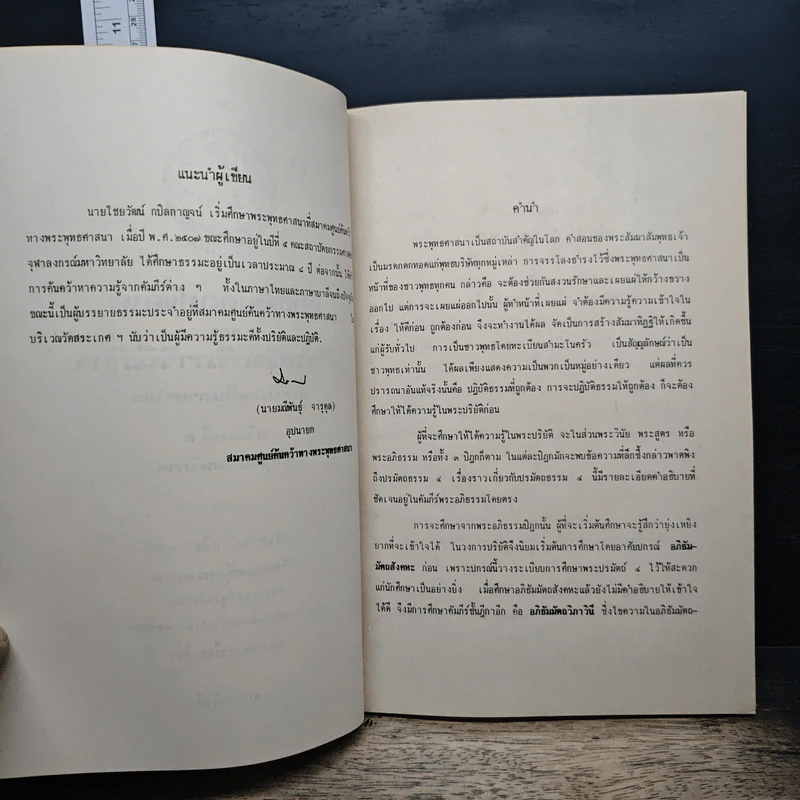 11
28
แนะนำผู้เขียน
นายไชยวัฒน์ กปิลกาญจน์ เริ่มศึกษาพระพุทธศาสนาที่สมาคมศูนย์ค้นคว้า
ทางพระพุทธศาสนา เมื่อปี พ.ศ.๒๕๐๗ ขณะศึกษาอยู่ในปีที่ ๕ คณะสถาปัตยกรรมศาสตร์
จุฬาลงกรณ์มหาวิทยาลัย ได้ศึกษาธรรมะอยู่เป็นเวลาประมาณ ๘ ปี ต่อจากนั้น
การค้นคว้าหาความรู้จากคัมภีร์ต่าง ๆ ทั้งในภาษาไทยและภาษาบาลีจนถึงปัจจุบัน
ขณะนี้เป็นผู้บรรยายธรรมะประจำอยู่ที่สมาคมศูนย์ค้นคว้าทางพระพุทธศาสนา
บริเวณวัดสระเกศ ฯ นับว่าเป็นผู้มีความรู้ธรรมะดีทั้งปริยัติและปฏิบัติ.
(นายมณีพันธุ์ จารุดุล)
อุปนายก
สมาคมศูนย์ค้นคว้าทางพระพุทธศาสนา
คำนำ
พระพุทธศาสนาเป็นสถาบันสำคัญในโลก คำสอนของพระสัมมาสัมพุทธเจ้า
เป็นมรดกตกทอดแก่พุทธบริษัททุกหมู่เหล่า การจรรโลงธำรงไว้ซึ่งพระพุทธศาสนาเป็น
หน้าที่ของชาวพุทธทุกคน กล่าวคือ จะต้องช่วยกันสงวนรักษาและเผยแผ่ให้กว้างขวาง
ออกไป แต่การจะเผยแผ่ออกไปนั้น ผู้ทำหน้าที่เผยแผ่ จำต้องมีความรู้ความเข้าใจใน
เรื่อง ให้ดีก่อน ถูกต้องก่อน จึงจะทำงานได้ผล จัดเป็นการสร้างสัมมาทิฏฐิให้เกิดขึ้น
แก่ผู้รับทั่วไป การเป็นชาวพุทธโดยทะเบียนสำมะโนครัว เป็นสัญญลักษณ์ว่าเป็น
ชาวพุทธเท่านั้น ได้ผลเพียงแสดงความเป็นพวกเป็นหมู่อย่างเดียว แต่ผลที่ควร
ปรารถนาอันแท้จริงนั้นคือ ปฏิบัติธรรมที่ถูกต้อง การจะปฏิบัติธรรมให้ถูกต้อง ก็จะต้อง
ศึกษาให้ได้ความรู้ในพระปริยัติก่อน
ผู้ที่จะศึกษาให้ได้ความรู้ในพระปริยัติ จะในส่วนพระวินัย พระสูตร หรือ
พระอภิธรรม หรือทั้ง ๓ ปิฎกก็ตาม ในแต่ละปิฎกมักจะพบข้อความที่ลึกซึ้งกล่าวพาดพิง
ถึงปรมัตถธรรม ๔ เรื่องราวเกี่ยวกับปรมัตถธรรม ๔ นี้มีรายละเอียดคำอธิบายที่
ชัดเจนอยู่ในคัมภีร์พระอภิธรรมโดยตรง
การจะศึกษาจากพระอภิธรรมปิฎกนั้น ผู้ที่จะเริ่มต้นศึกษาจะรู้สึกว่ายุ่งเหยิง
ยากที่จะเข้าใจได้ ในวงการปริยัติจึงนิยมเริ่มต้นการศึกษาโดยอาศัยปกรณ์ อภิธัม-
มัตถสังคหะ ก่อน เพราะปกรณ์นี้วางระเบียบการศึกษาพระปรมัตถ์ ๔ ไว้ให้สะดวก
แก่นักศึกษาเป็นอย่างยิ่ง เมื่อศึกษาอภิธัมมัตถสังคหะแล้วยังไม่มีคำอธิบายให้เข้าใจ
ได้ดี จึงมีการศึกษาคัมภีร์ชั้นฎีกาอีก คือ อภิธัมมัตถวิภาวินี ซึ่งไขความในอภิธัมมัตถ-